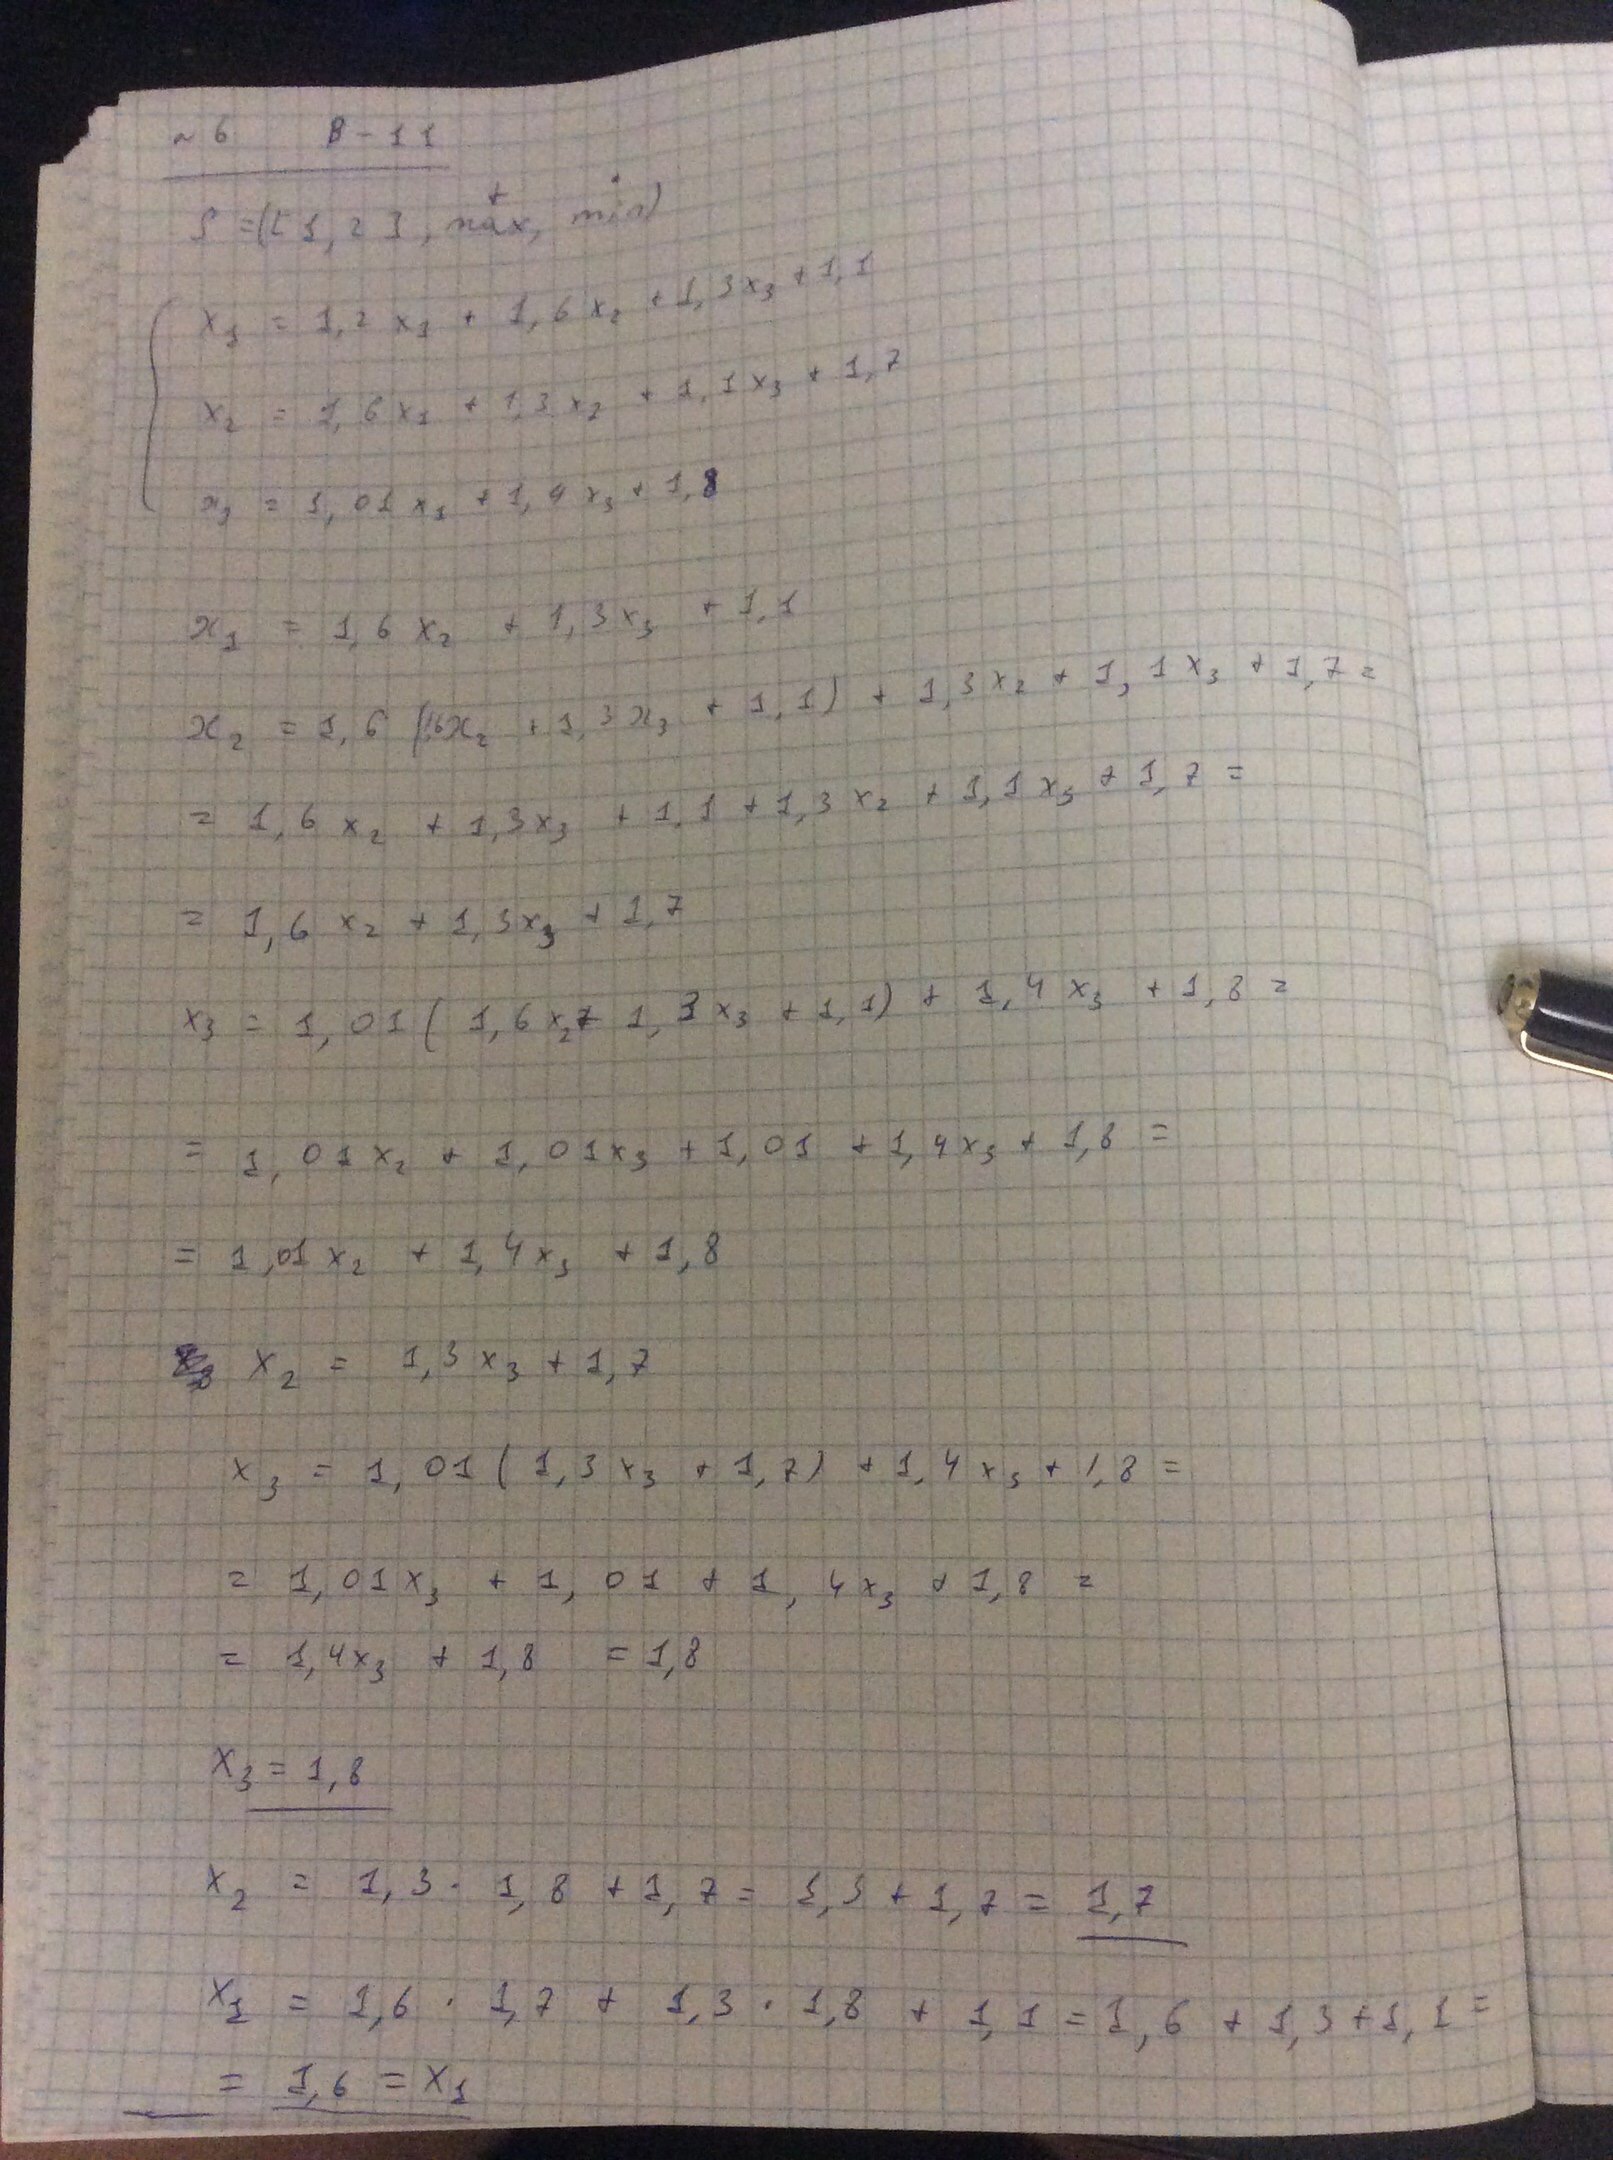 ~ 6 В - 11
S = ([1,2], max, min)
+ ·
x₁ = 1,2 x₁ + 1,6 x₂ + 1,3 x₃ + 1,1
x₂ = 1,6 x₁ + 1,3 x₂ + 1,1 x₃ + 1,7
x₃ = 1,01 x₁ + 1,4 x₃ + 1,8
x₁ = 1,6 x₂ + 1,3 x₃ + 1,1
x₂ = 1,6 (1,6x₂ + 1,3x₃ + 1,1) + 1,3x₂ + 1,1x₃ + 1,7 =
= 1,6 x₂ + 1,3x₃ + 1,1 + 1,3 x₂ + 1,1 x₃ + 1,7 =
= 1,6 x₂ + 1,3x₃ + 1,7
x₃ = 1,01 ( 1,6 x₂ + 1,3 x₃ + 1,1) + 1,4 x₃ + 1,8 =
= 1,01x₂ + 1,01x₃ + 1,01 + 1,4x₃ + 1,8 =
= 1,01 x₂ + 1,4x₃ + 1,8
x₂ = 1,3 x₃ + 1,7
x₃ = 1,01 ( 1,3 x₃ + 1,7) + 1,4 x₃ + 1,8 =
= 1,01 x₃ + 1,01 + 1,4x₃ + 1,8 =
= 1,4x₃ + 1,8 = 1,8
x₃ = 1,8
x₂ = 1,3 · 1,8 + 1,7 = 1,3 + 1,7 = 1,7
x₁ = 1,6 · 1,7 + 1,3 · 1,8 + 1,1 = 1,6 + 1,3 + 1,1 =
= 1,6 = x₁